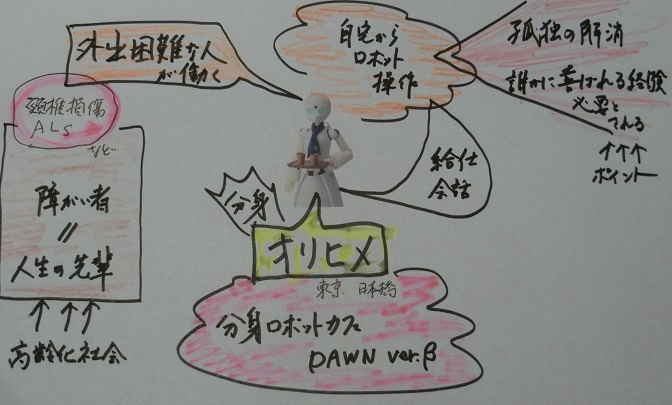 外出困難な人
が働く
自宅から
ロボット
操作
孤独の解消
誰かに喜ばれる経験
必要と
される
↑↑↑
ポイント
頸椎損傷
ALS
など
障がい者
〃
人生の先輩
↑↑↑
高齢化社会
分身
給仕
会話
オリヒメ
東京 日本橋
分身ロボットカフェ
DAWN ver.β